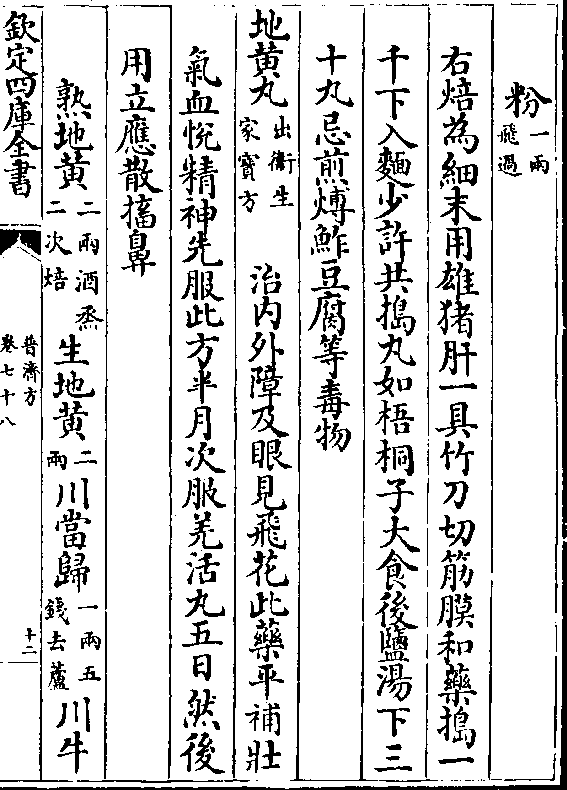 粉一兩飛過
右焙為細末用雄猪肝一具竹刀切筋膜和藥搗一
千下入麵少許共搗丸如梧桐子大食後鹽湯下三
十丸忌煎煿鮓豆腐等毒物
地黄丸出衛生家寳方 治内外障及眼見飛花此藥平補壯
氣血悅精神先服此方半月次服羌活丸五日然後
用立應散搐鼻
熟地黄二兩酒烝二次焙 生地黄二兩 川當歸一兩五錢去蘆 川牛
欽定四庫全書
普濟方
卷七十八
十二